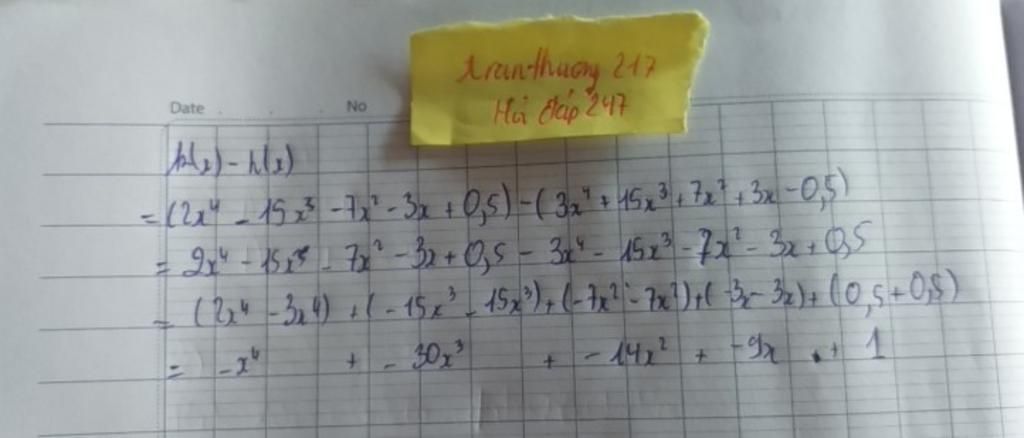 tranthuong 217
Hỏi đáp 247
Date No
k(x) - h(x)
= (2x⁴ - 15x³ - 7x² - 3x + 0,5) - (3x⁴ + 15x³ + 7x² + 3x - 0,5)
= 2x⁴ - 15x³ - 7x² - 3x + 0,5 - 3x⁴ - 15x³ - 7x² - 3x + 0,5
= (2x⁴ - 3x⁴) + (-15x³ - 15x³) + (-7x² - 7x²) + (-3x - 3x) + (0,5 + 0,5)
= -x⁴ + - 30x³ + - 14x² + -9x + 1